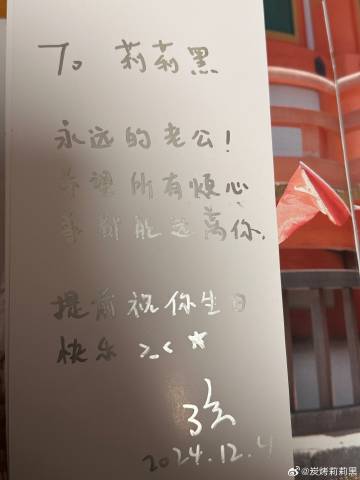 To 莉莉黑
永远的老公!
希望所有烦心
事都能远离你.
提前祝你生日
快乐 >_< ★
2024.12.4
@炭烤莉莉黑